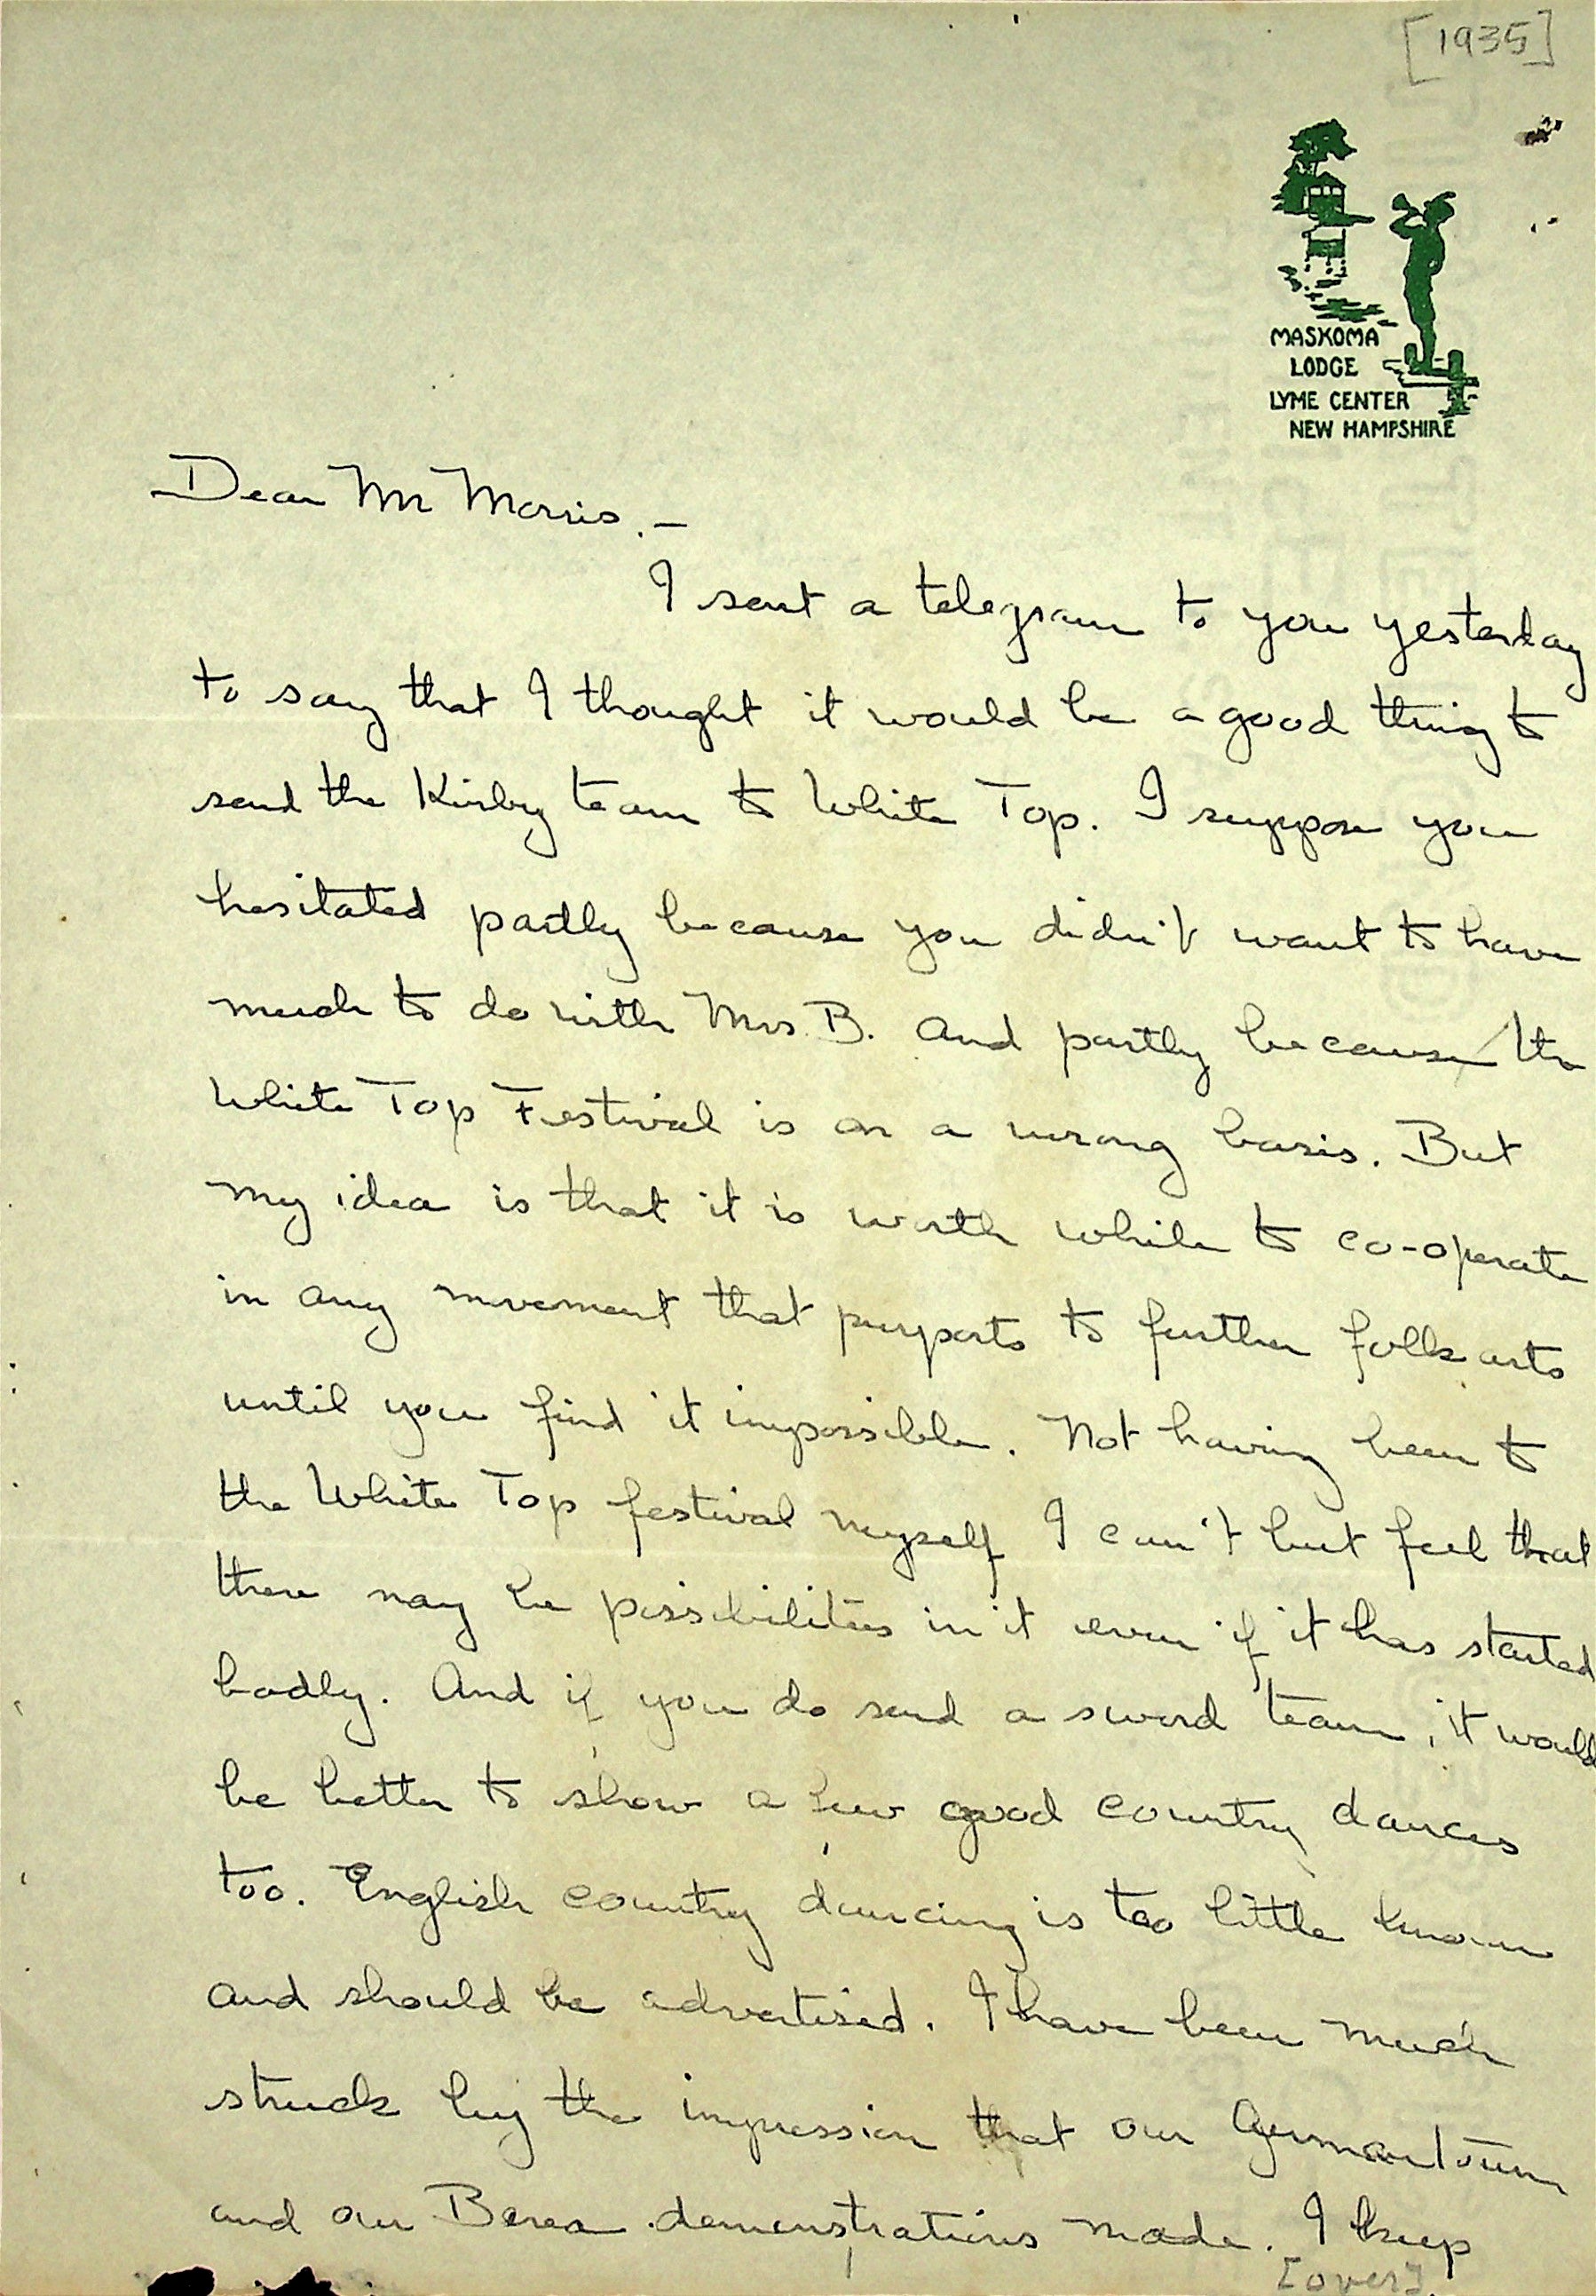 [1935]
MASKOMA
LODGE
LYME CENTER
NEW HAMPSHIRE
Dear Mr Morris. —
I sent a telegram to you yesterday
to say that I thought it would be a good thing to
send the Kirby team to White Top. I suppose you
hesitated partly because you didn't want to have
much to do with Mrs B. And partly because the
White Top Festival is on a wrong basis. But
my idea is that it is worth while to co-operate
in any movement that purports to further folk arts
until you find it impossible. Not having been to
the White Top festival myself I can't but feel that
there may be possibilities in it even if it has started
badly. And if you do send a sword team, it would
be better to show a few good country dances
too. English country dancing is too little known
and should be advertised. I have been much
struck by the impression that our Germantown
and our Berea demonstrations made. I keep
[over]